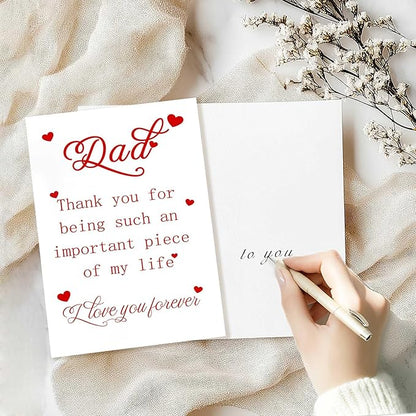 Dad
Thank you for
being such an
important piece
of my life
I love you forever
to you